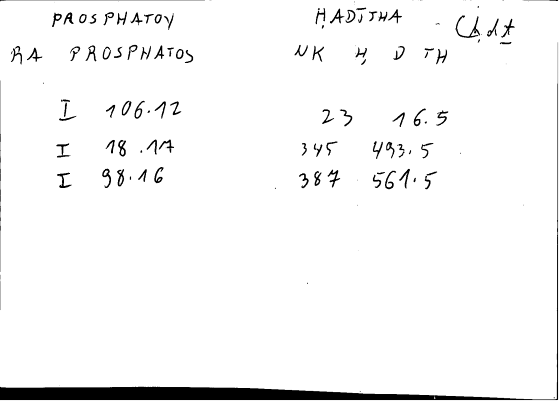 PROSPHATOY ḤADĪTHA Ch,dṯ
RA PROSPHATOS NK Ḥ D TH
I 106.12 23 16.5
I 18.17 345 493.5
I 98.16 387 561.5